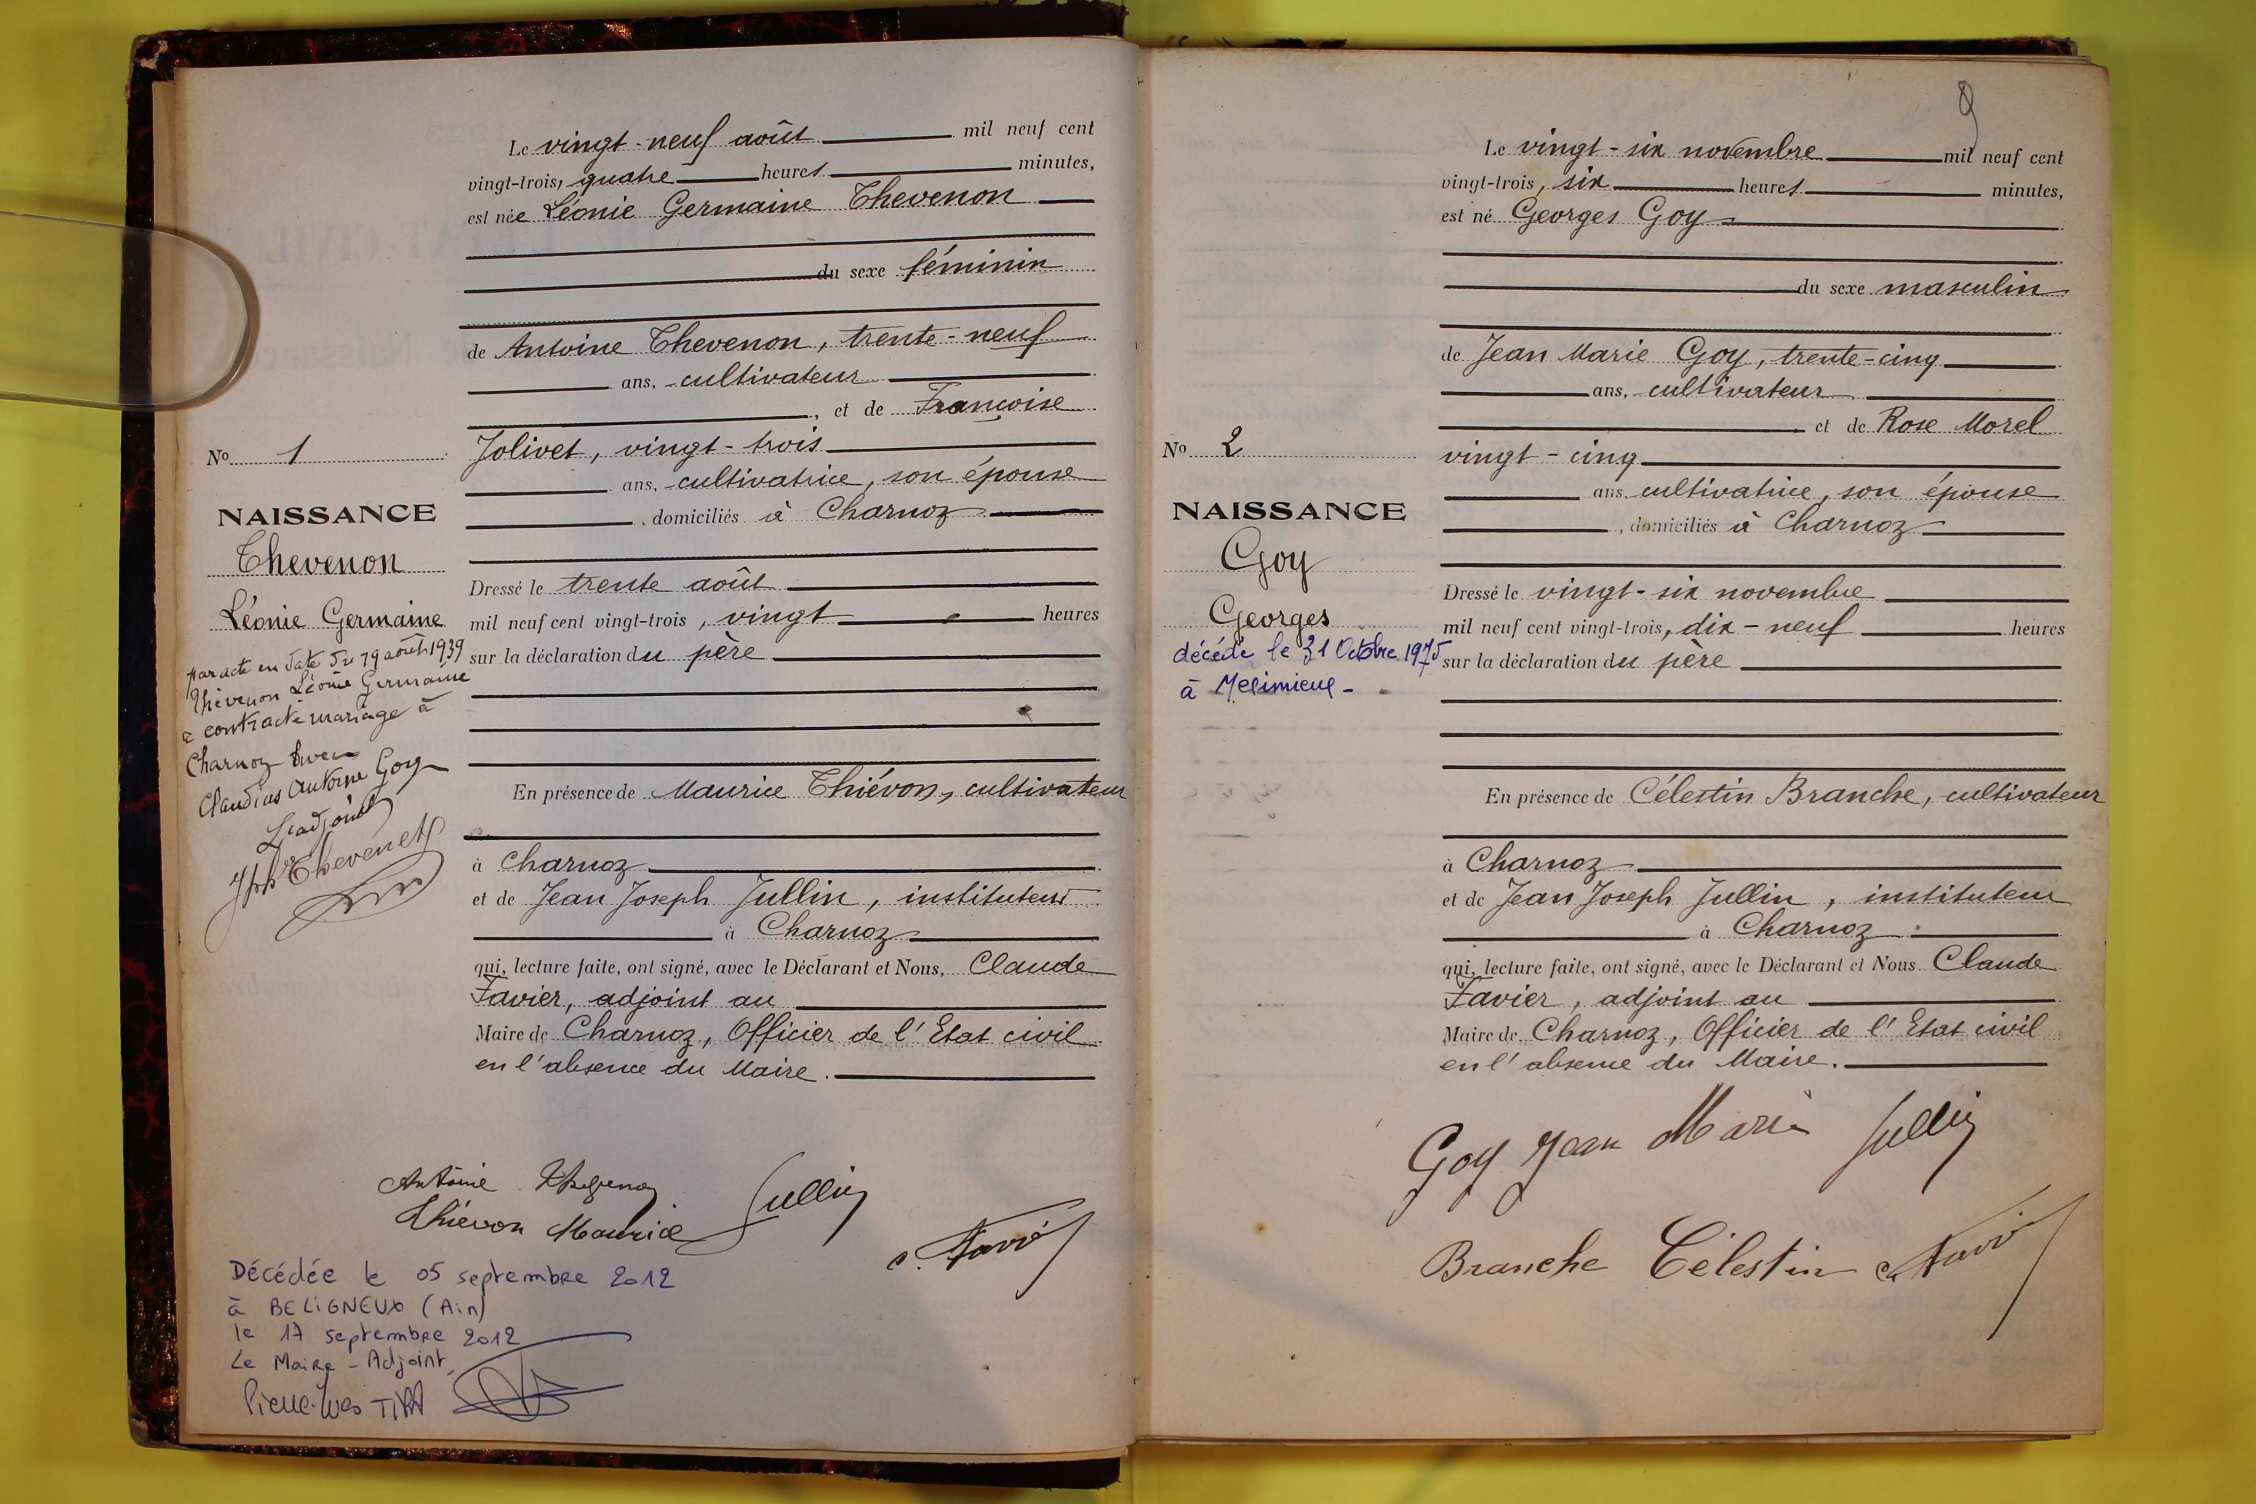 Le vingt-neuf août mil neuf cent
vingt-trois, quatre heures minutes,
est née Léonie Germaine Thevenon
du sexe féminin
de Antoine Thevenon, trente-neuf
ans, cultivateur
, et de Françoise
Jolivet, vingt-trois
ans, cultivatrice, son épouse
, domiciliés à Charnoz
Dressé le trente août
mil neuf cent vingt-trois, vingt heures
sur la déclaration du père
En présence de Maurice Thiévon, cultivateur
à Charnoz
et de Jean Joseph Jullin, instituteur
à Charnoz
qui, lecture faite, ont signé, avec le Déclarant et Nous, Claude
Favier, adjoint au
Maire de Charnoz, Officier de l'Etat civil
en l'absence du Maire.
No 1
NAISSANCE
Thevenon
Léonie Germaine
par acte en date du 19 août 1939
Thévenon Léonie Germaine
a contracté mariage à
Charnoz avec
Claudius Antoine Goy
L'adjoint
Jph Thevenet
Antoine Thevenon
Thiévon Maurice
Jullin
C. Favier
Décédée le 05 septembre 2012
à BELIGNEUX (Ain)
le 17 septembre 2012
Le Maire-Adjoint,
Pierre-Yves
9
Le vingt-six novembre mil neuf cent
vingt-trois, six heures minutes,
est né Georges Goy
du sexe masculin
de Jean Marie Goy, trente-cinq
ans, cultivateur
et de Rose Morel
vingt-cinq
ans, cultivatrice, son épouse
, domiciliés à Charnoz
Dressé le vingt-six novembre
mil neuf cent vingt-trois, dix-neuf heures
sur la déclaration du père
En présence de Célestin Branche, cultivateur
à Charnoz
et de Jean Joseph Jullin, instituteur
à Charnoz
qui, lecture faite, ont signé, avec le Déclarant et Nous Claude
Favier, adjoint au
Maire de Charnoz, Officier de l'Etat civil
en l'absence du Maire.
No 2
NAISSANCE
Goy
Georges
décédé le 31 Octobre 1975
à Meximieux
Goy Jean Marie
Jullin
Branche Célestin
C. Favier